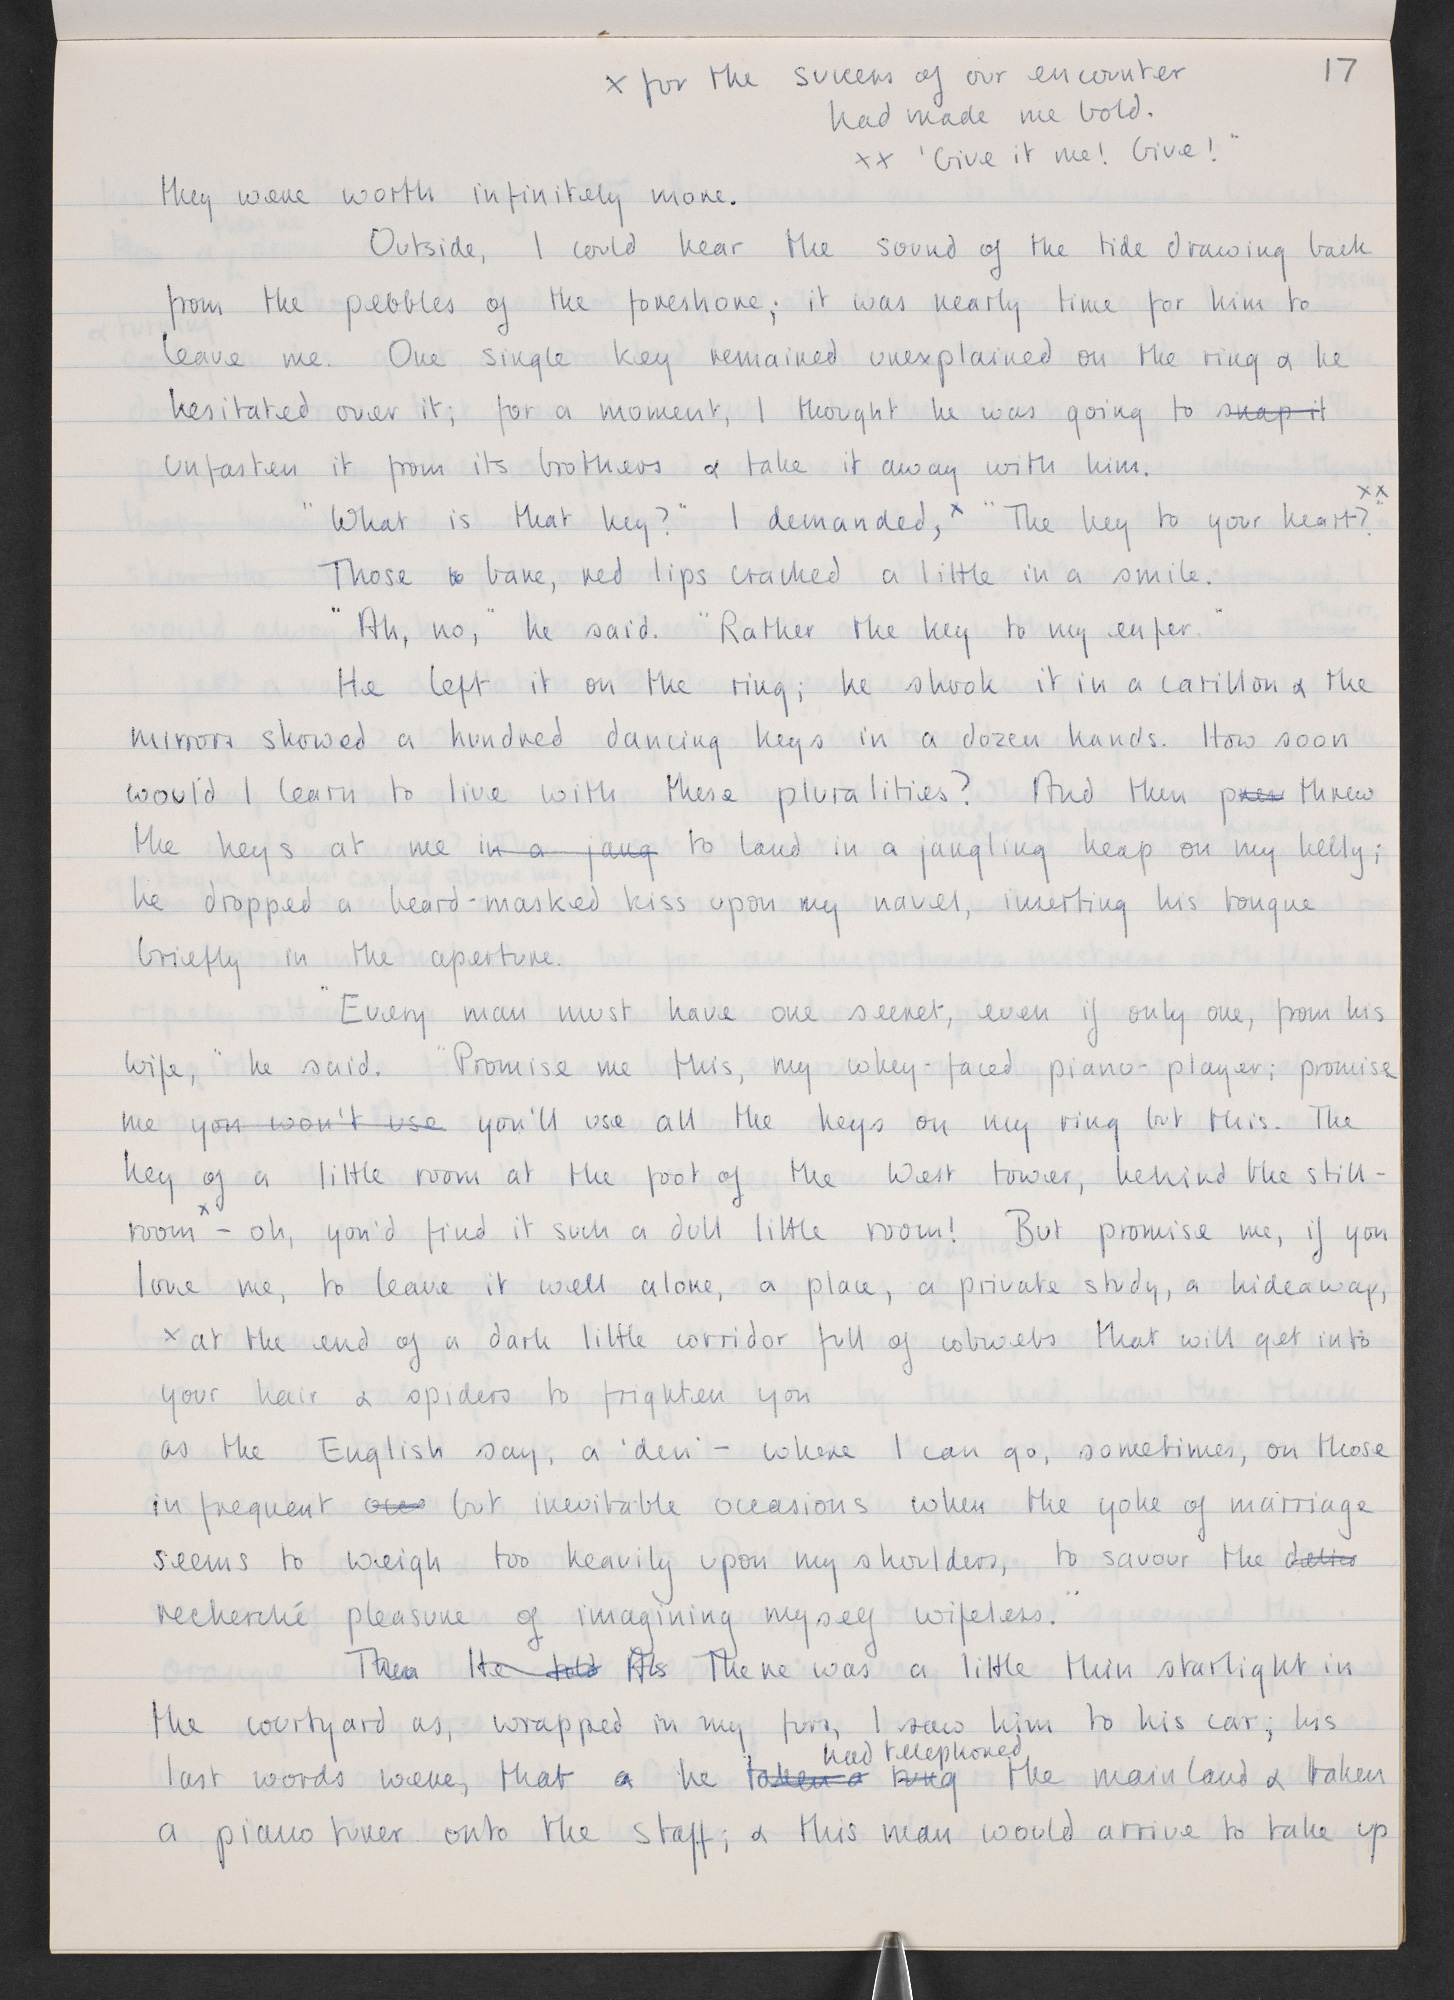 17
x for the success of our encounter
had made me bold.
xx 'Give it me! Give!"
they were worth infinitely more.
Outside, I could hear the sound of the tide drawing back
from the pebbles of the foreshore; it was nearly time for him to
leave me. One single key remained unexplained on the ring & he
hesitated over it; for a moment, I thought he was going to snap it
unfasten it from its brothers & take it away with him.
xx
"What is that key?" I demanded,x "The key to your heart?"
Those bare, red lips cracked a little in a smile.
"Ah, no," he said. "Rather the key to my enfer."
He left it on the ring; he shook it in a carillon & the
mirrors showed a hundred dancing keys in a dozen hands. How soon
would I learn to live with these pluralities? And then threw
the keys at me in a jang to land in a jangling heap on my belly;
he dropped a beard-masked kiss upon my navel, inserting his tongue
briefly in the aperture.
"Every man must have one secret, even if only one, from his
wife," he said. "Promise me this, my whey-faced piano-player; promise
me you won't use you'll use all the keys on my ring but this. The
key of a little room at the foot of the West tower, behind the still-
roomx - oh, you'd find it such a dull little room! But promise me, if you
love me, to leave it well alone, a place, a private study, a hideaway,
x at the end of a dark little corridor full of cobwebs that will get into
your hair & spiders to frighten you
as the English say, a 'den' - where I can go, sometimes, on those
infrequent occs but inevitable occasions when the yoke of marriage
seems to weigh too heavily upon my shoulders, to savour the
recherché pleasure of imagining myself wifeless."
Then He told As There was a little thin starlight in
the courtyard as, wrapped in my furs, I saw him to his car; his
had telephoned
last words were, that a he taken a rung the mainland & taken
a piano tuner onto the staff; & this man would arrive to take up